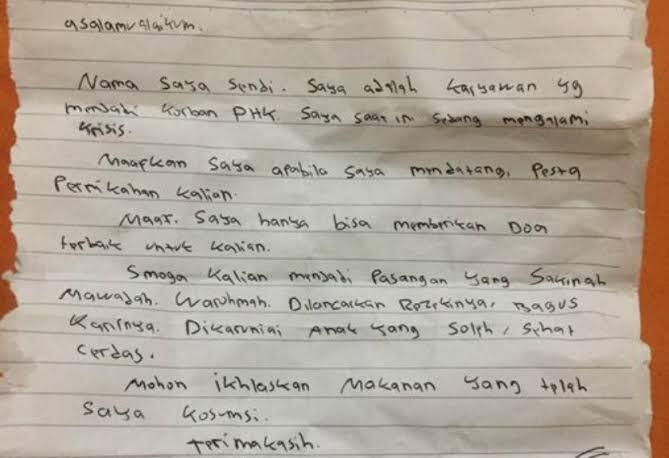 asalamualaikum.
Nama saya sendi. saya adalah karyawan yg
menjadi korban PHK. saya saat ini sedang mengalami
krisis.
Maafkan saya apabila saya mendatangi pesta
Pernikahan kalian.
Maaf. saya hanya bisa memberikan Doa
terbaik untuk kalian.
Smoga kalian menjadi Pasangan yang Sakinah
Mawadah. Warohmah. Dilancarkan Rezekinya, Bagus
Karirnya. Dikaruniai Anak yang Soleh, Sehat
Cerdas.
Mohon ikhlaskan Makanan yang telah
saya kosumsi.
Terimakasih.